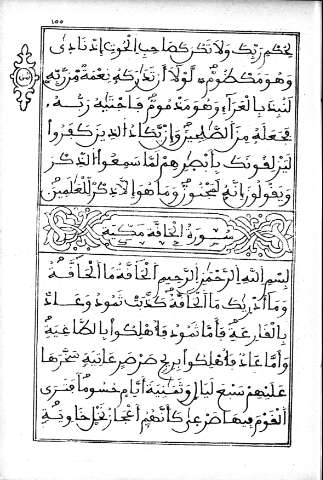 ١٥٥
لِحُكْمِ رَبِّكَ وَلَا تَكُن كَصَاحِبِ الْحُوتِ إِذْ نَادَىٰ
وَهُوَ مَكْظُومٌ لَّوْلَا أَن تَدَارَكَهُ نِعْمَةٌ مِّن رَّبِّهِ
لَنُبِذَ بِالْعَرَاءِ وَهُوَ مَذْمُومٌ فَاجْتَبَاهُ رَبُّهُ
فَجَعَلَهُ مِنَ الصَّالِحِينَ وَإِن يَكَادُ الَّذِينَ كَفَرُوا
لَيُزْلِقُونَكَ بِأَبْصَارِهِمْ لَمَّا سَمِعُوا الذِّكْرَ
وَيَقُولُونَ إِنَّهُ لَمَجْنُونٌ وَمَا هُوَ إِلَّا ذِكْرٌ لِّلْعَالَمِينَ
سورة الحاقة مكية
بِسْمِ اللَّهِ الرَّحْمَٰنِ الرَّحِيمِ الْحَاقَّةُ مَا الْحَاقَّةُ
وَمَا أَدْرَاكَ مَا الْحَاقَّةُ كَذَّبَتْ ثَمُودُ وَعَادٌ
بِالْقَارِعَةِ فَأَمَّا ثَمُودُ فَأُهْلِكُوا بِالطَّاغِيَةِ
وَأَمَّا عَادٌ فَأُهْلِكُوا بِرِيحٍ صَرْصَرٍ عَاتِيَةٍ سَخَّرَهَا
عَلَيْهِمْ سَبْعَ لَيَالٍ وَثَمَانِيَةَ أَيَّامٍ حُسُومًا فَتَرَى
الْقَوْمَ فِيهَا صَرْعَىٰ كَأَنَّهُمْ أَعْجَازُ نَخْلٍ خَاوِيَةٍ